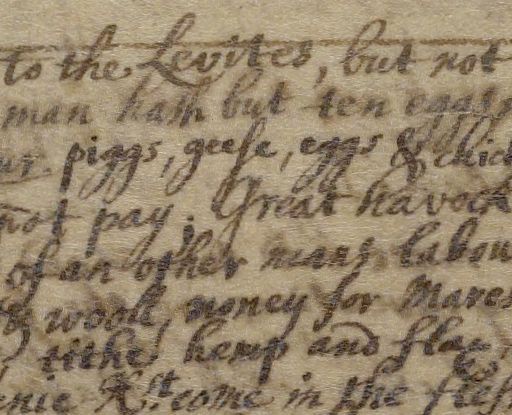 to the Levites, but not
man hath but ten eggs
piggs, geese, eggs & chic
not pay. Great havock
of an other mans labou
wooll, money for mares
tithe hemp and flax,
enie Xst come in the fles